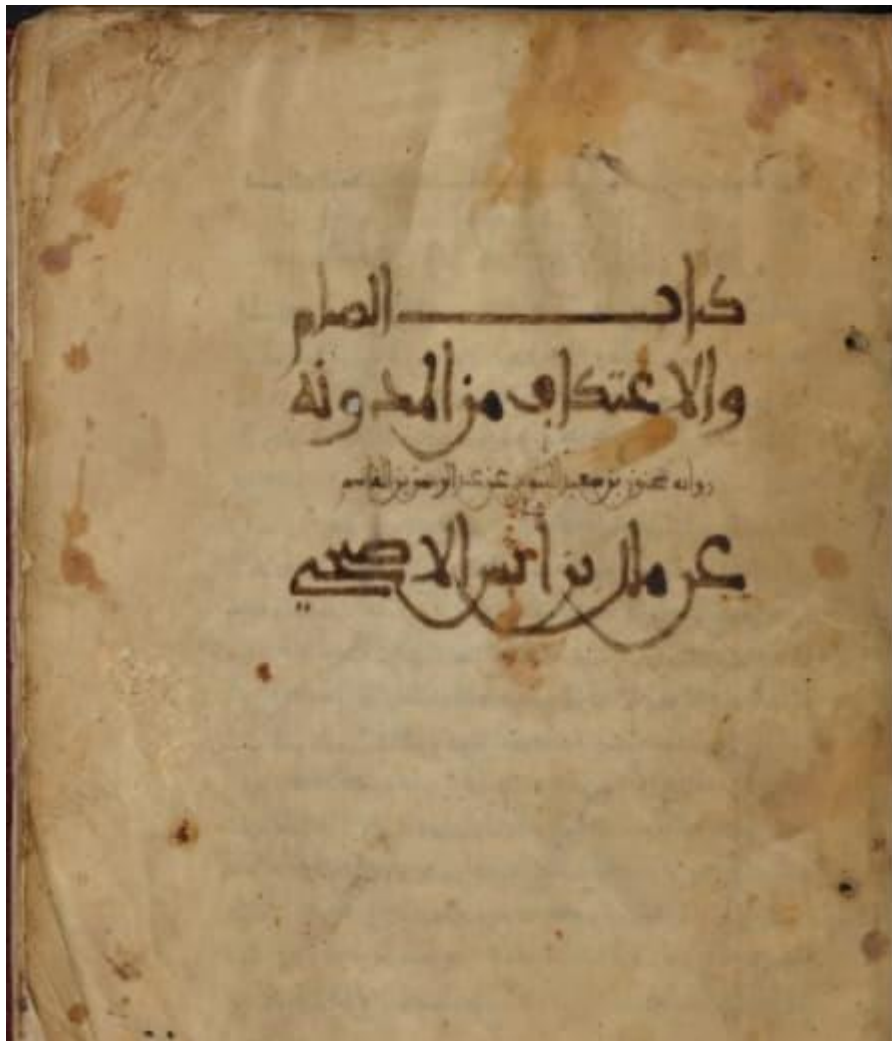 كتاب الصيام
والاعتكاف من المدونه
روايه سحنون بن سعيد التنوخي عن عبد الرحمن بن القاسم
عن ملك بن أنس الاصبحي